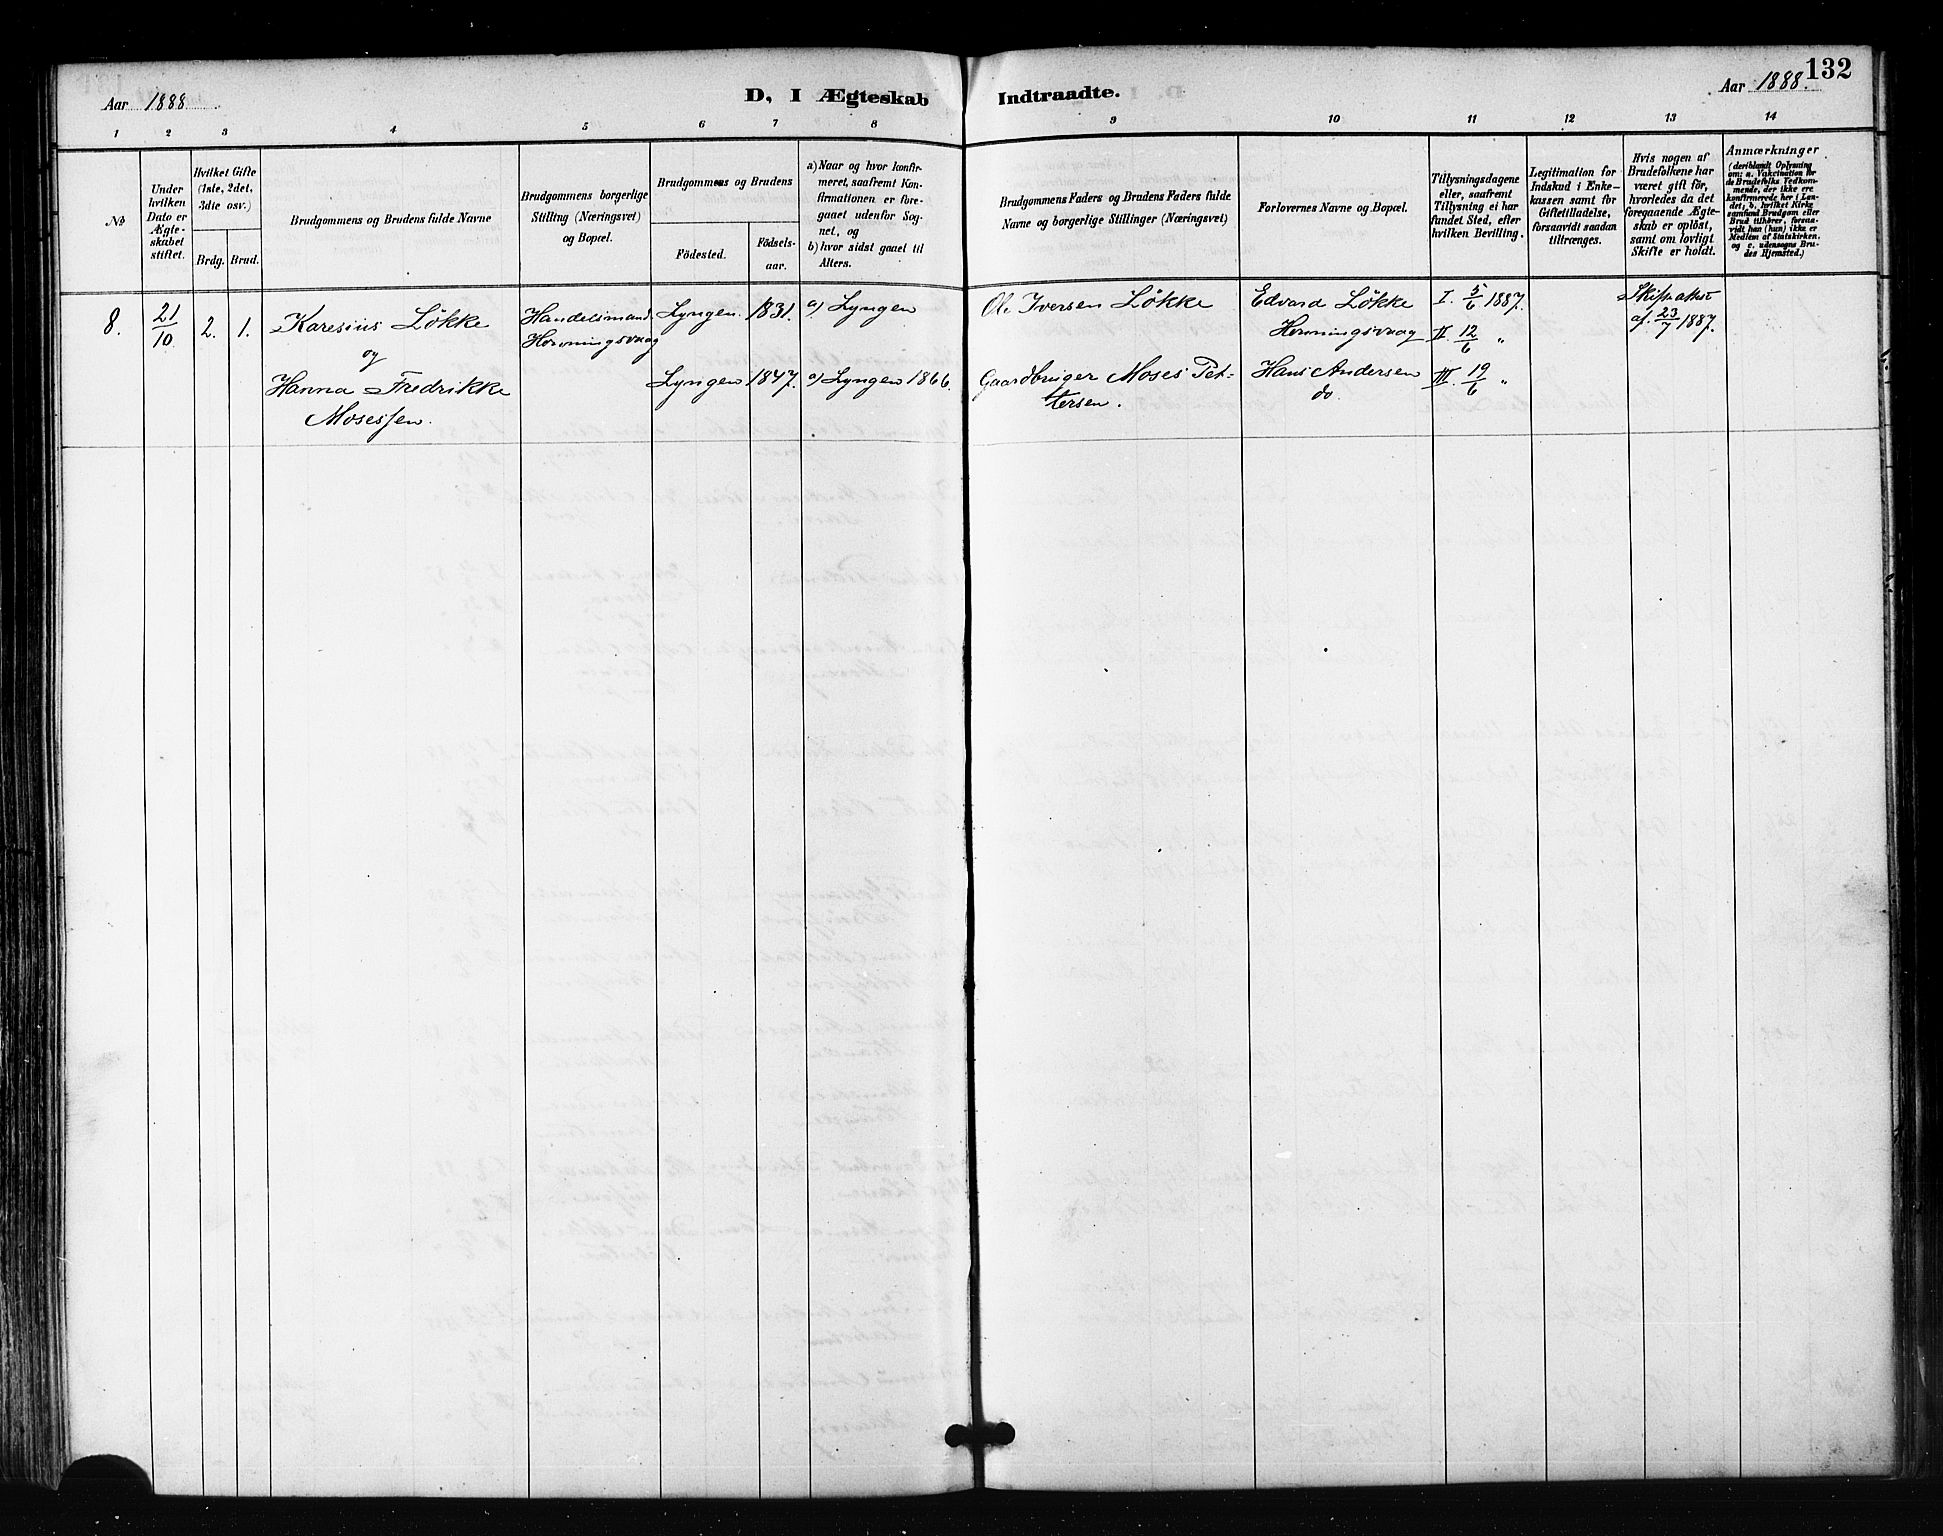 132
Aar 1888.
D, I Ægteskab Indtraadte.
Aar 1888.
1 2 3 4 5 6 7 8 9 10 11 12 13 14
No
Under
hvilken
Dato er
Ægte-
skabet
stiftet.
Hvilket Gifte
(1ste, 2det,
3die osv.)
Brdg. Brud.
Brudgommens og Brudens fulde Navne
Brudgommens borgerlige
Stilling (Næringsvei)
og Bopæl.
Brudgommens og Brudens
Fødested.
Fødsels-
aar.
a) Naar og hvor konfir-
meret, saafremt Kon-
firmationen er fore-
gaaet udenfor Sog-
net, og
b) hvor sidst gaaet til
Alters.
Brudgommens Faders og Brudens Faders fulde
Navne og borgerlige Stillinger (Næringsvei)
Forlovernes Navne og Bopæl.
Tillysningsdagene
eller, saafremt
Tillysning ei har
fundet Sted, efter
hvilken Bevilling.
Legitimation for
Indskud i Enke-
kassen samt for
Giftetilladelse,
forsaavidt saadan
tiltrænges.
Hvis nogen af
Brudefolkene har
været gift før,
hvorledes da det
foregaaende Ægte-
skab er opløst,
samt om lovligt
Skifte er holdt.
Anmærkninger
(deriblandt Oplysning
om: a. Vakcination for
de Brudefolks Vedkom-
mende, der ikke ere
konfirmerede her i Lan-
det, b. hvilket Kirke
samfund Brudgom eller
Brud tilhører, forsaa-
vidt han (hun) ikke er
Medlem af Statskirken,
og c. udensogns Bru-
des Hjemsted.)
8. 21/10 2. 1. Karesius Løkke Handelsmand Lyngen. 1831. a) Lyngen Ole Iversen Løkke Edvard Løkke I. 5/6 1887. Skifteattest
Honningsvaag Honningsvaag II 12/6 " af 23/7 1887.
og
Hanna Fredrikke Lyngen 1847. a) Lyngen 1866. Gaardbruger Moses Pet- Hans Andersen III 19/6 "
Mosessen. tersen. do.